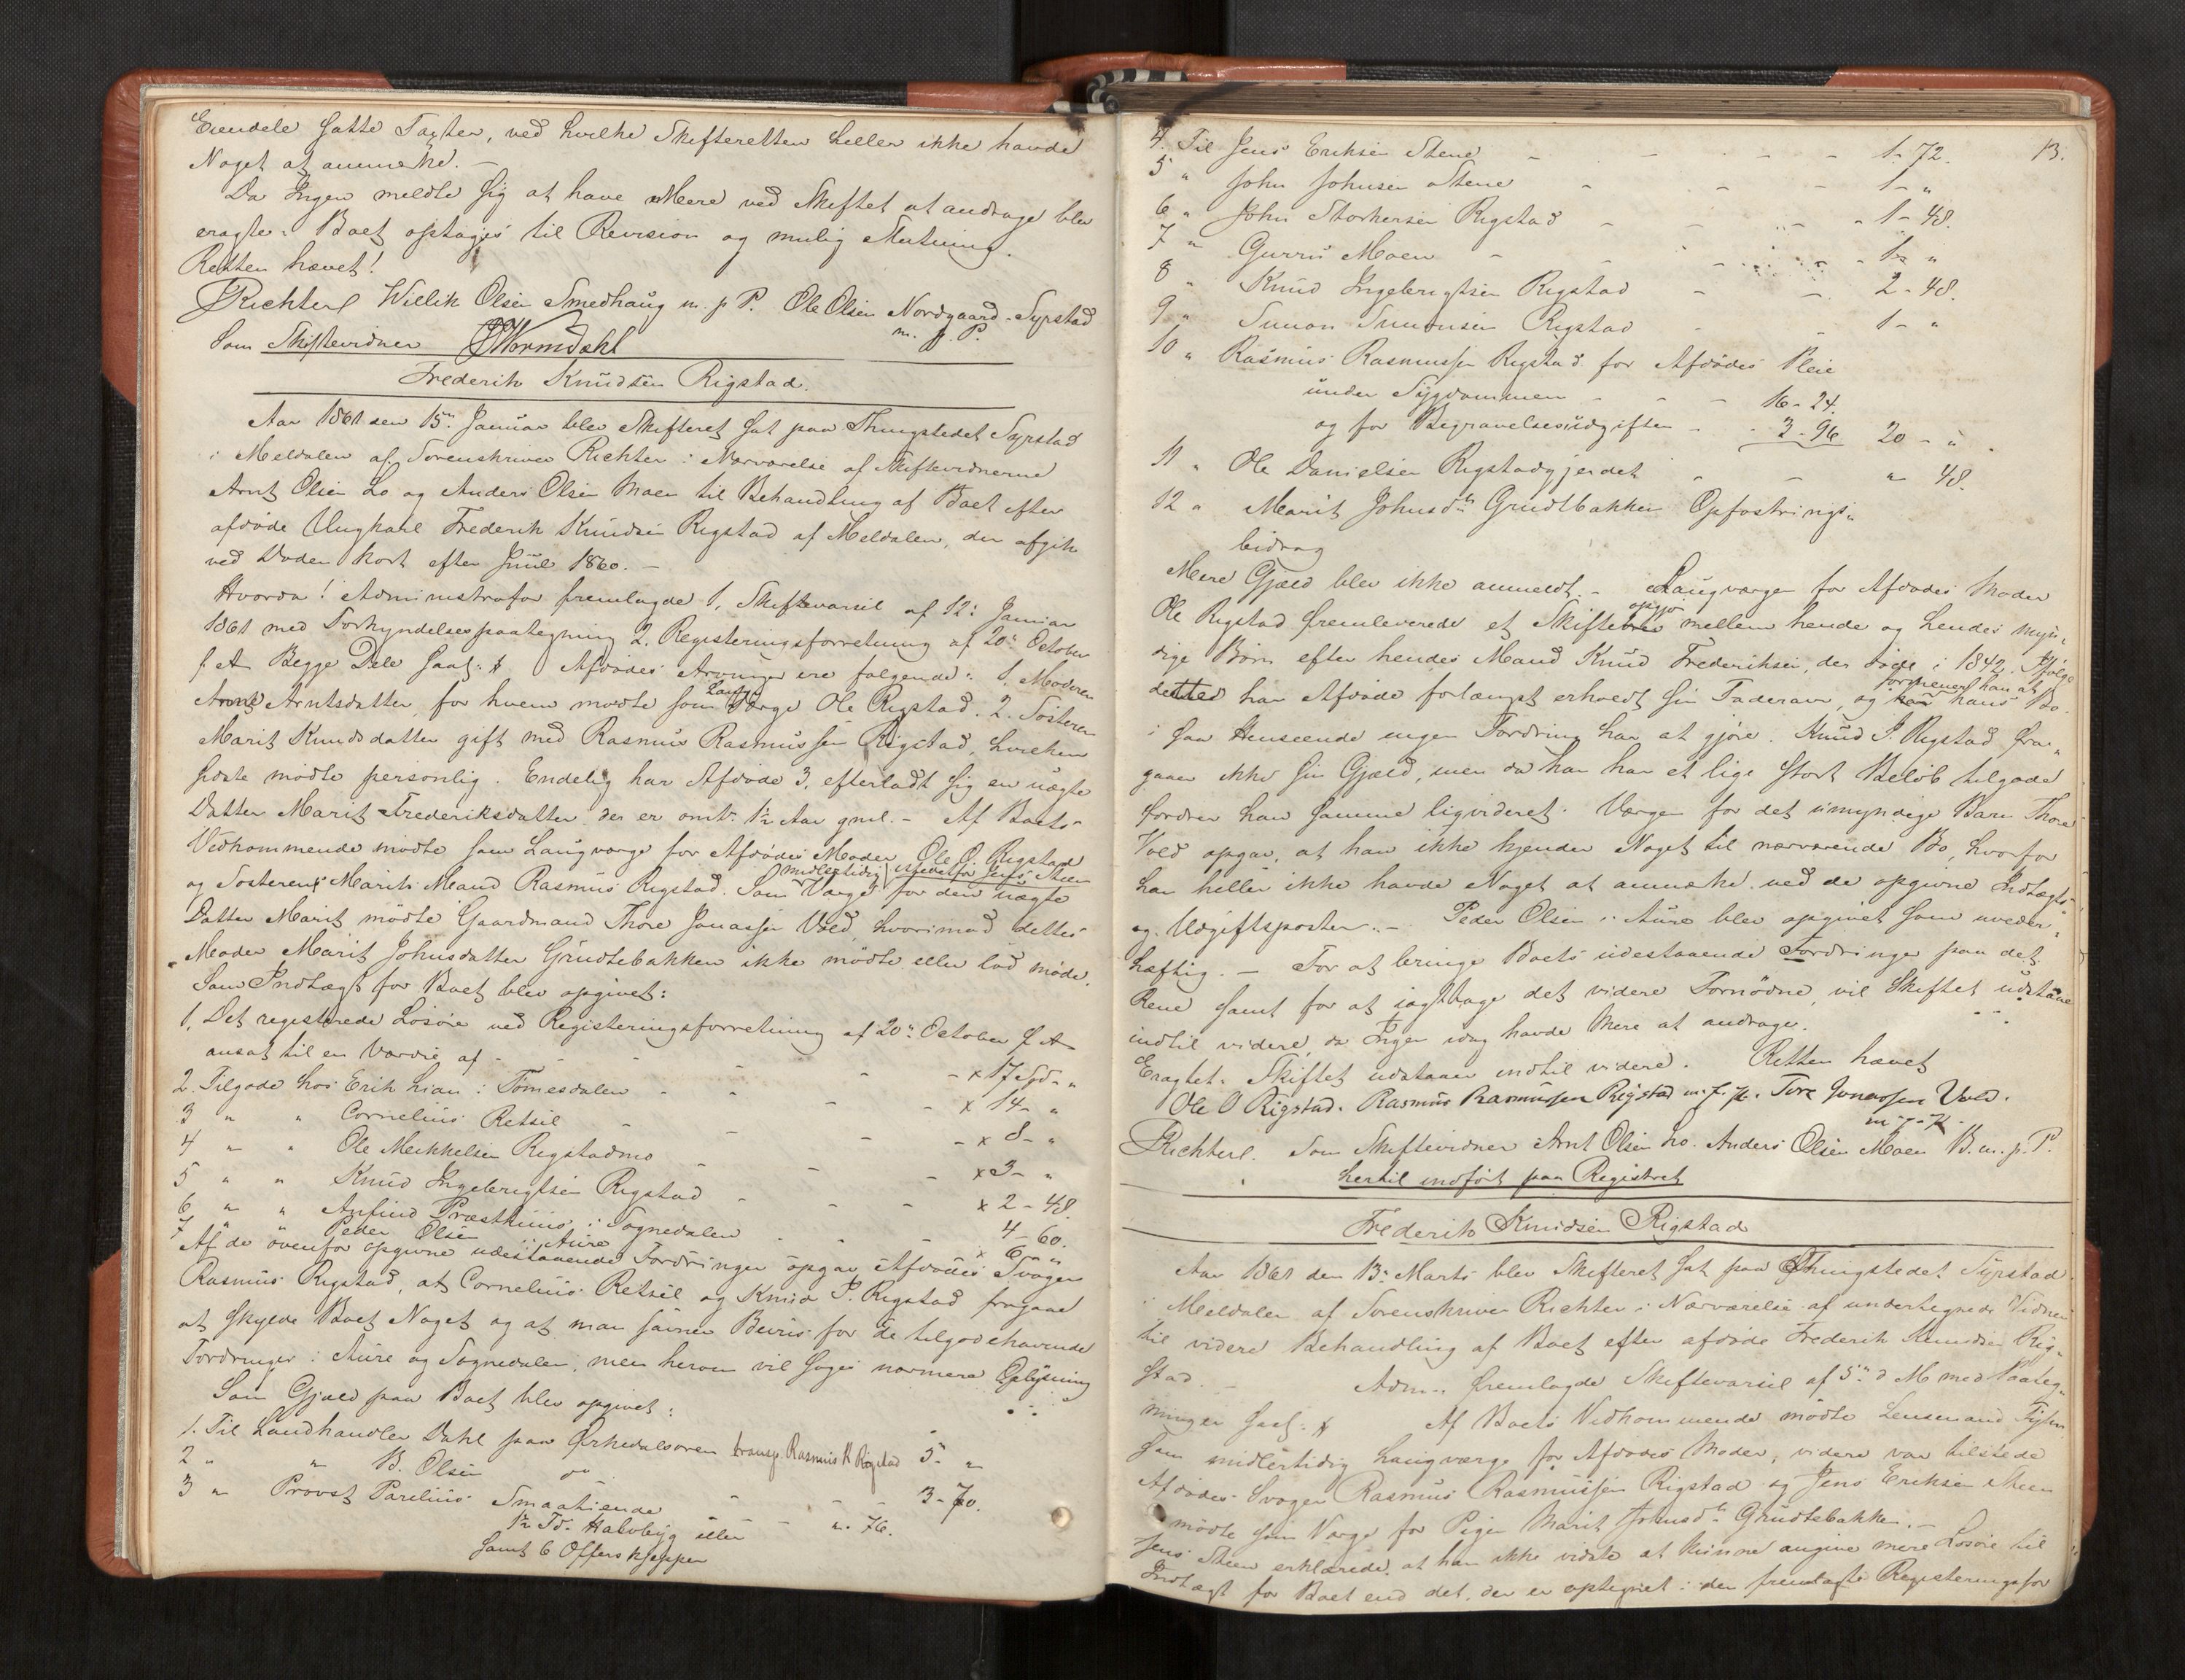 Eiendele satte Taxter, ved hvilke Skifteretten heller ikke havde
Noget at anmærke. –
Da Ingen meldte sig at have Mere ved Skiftet at andrage blev
eragtet: Boet optages til Revision og mulig Slutning.
Retten hævet!
Richter Willik Olsen Smedhaug m. p P. Ole Olsen Nordgaard-Syrstad
m. p. P.
Som Skiftevidner Wormdahl
Frederik Knudsen Rigstad.
Aar 1861 den 15de Januar blev Skifteret sat paa Thingstedet Syrstad
i Meldalen af Sorenskriver Richter i Nærværelse af Skiftevidnerne
Arnt Olsen Lo og Anders Olsen Moen til Behandling af Boet efter
afdøde Ungkarl Frederik Knudsen Rigstad af Meldalen, der afgik
ved Døden kort efter Juul 1860. –
Hvorda! Administrator fremlagde 1, Skiftevarsel af 12te Januar
1861 med Forkyndelsespaategning 2. Registeringsforretning af 20de October
f. A. Begge Dele saal: Afdødes Arvinger ere følgende: 1. Moderen
Arntsdatter, for hvem mødte som Laugværge Ole Rigstad. 2. Søsteren
Marit Knudsdatter gift med Rasmus Rasmussen Rigstad, hvilken
sidste mødte personlig. Endelig har Afdøde 3, efterladt sig en uægte
Datter Marit Frederiksdatter der er omtr. 1½ Aar gml. – Af Boets
Vedkommende mødte som Laugværge for Afdødes Moder Ole O. Rigstad
og Søsterens Marits Mand Rasmus Rigstad. Som midlertidig Værge istedetfor Jens Steen for den uægte
Datter Marit mødte Gaardmand Thore Jonassen Vold, hvorimod dettes
Moder Marit Johnsdatter Grudtebakken ikke mødte eller lod møde.
Som Indtægt for Boet blev opgivet:
1, Det registrerede Løsøre ved Registeringsforretning af 20de October f A
ansat til en Værdie af - - - - x 17 Spd - "
2. Tilgode hos Erik Lian i Tomesdalen - - - x 14 - "
3 " " Cornelius Retsil - - - x 8 - "
4 " " Ole Mekkelsen Rigstadmo - - - x 3 - "
5 " " Knud Ingebrigtsen Rigstad - - - x 2 - 48.
6 " " Anfind Præsthuus i Sognedalen - - - 4 - 60.
7 " " Peder Olsen i Aure x 6 - "
Af de ovenfor opgivne udestaaende Fordringer opgav Afdødes Svoger
Rasmus Rigstad, at Cornelius Retsil og Knud I. Rigstad fragaae
at skylde Boet Noget og at man savner Beviis for de tilgodehavende
Fordringer i Aure og Sognedalen, men herom vil søges nærmere Oplysning
Som Gjæld paa Boet blev opgivet:
1. Til Landhandler Dahl paa Ørkedalsøren transp. Rasmus R Rigstad 5 - "
2 " " B. Olsen do
3 " Provst Parelius Smaatiende - - - 3 - 70.
½ Td. Halvbyg eller - " - 76.
samt 6 Offerskjepper
13.
4. Til Jens Eriksen Stene - - - - 1 - 72.
5 " John Johnsen Stene - - - 1 - "
6 " John Storkersen Rigstad - - - 1 - 48.
7 " Gurru Moen - - - 1 - "
8 " Knud Ingebrigtsen Rigstad - - 2 - 48.
9 " Simon Simonsen Rigstad - 1 - "
10 " Rasmus Rasmussen Rigstad for Afdødes Pleie
under Sygdommen - - - 16 - 24.
og for Begravelsesudgifter - - 3 - 96 20 - "
11 " Ole Danielsen Rigstadgjerdet - - " 48.
12 " Marit Johnsdtr Grudtbakken Opfostrings-
bidrag
Mere Gjæld blev ikke anmeldt. – Laugværgen for Afdødes Moder
Ole Rigstad fremleverede et Skifteopgjør mellem hende og hendes myn-
dige Børn efter hendes Mand Knud Frederiksen, der døde i 1842. Ifølge
dette har Afdøde forlængst erholdt sin Faderarv, og formener han at hans Bo
i saa Henseende ingen Fordring har at gjøre. Knud I. Rigstad fra-
gaaer ikke sin Gjæld, men da han har et lige stort Beløb tilgode
fordrer han samme liqvideret. Værgen for det umyndige Barn Thore
Vold opgav, at han ikke kjender Noget til nærværende Bo, hvorfor
han heller ikke havde Noget at anmærke ved de opgivne Indtægts-
og Udgiftsposter. – Peder Olsen i Aure blev opgivet som uveder-
hæftig. – For at bringe Boets udestaaende Fordringer paa det
Rene samt for at iagttage det videre Fornødne, vil Skiftet udstaae
indtil videre, da Ingen idag havde Mere at andrage.
Eragtet: Skiftet udstaaer indtil videre. Retten hævet
Ole O Rigstad. Rasmus Rasmussen Rigstad m. f. p. Tore Jonassen Vold.
m f P
Richter. Som Skiftevidner Arnt Olsen Lo. Anders Olsen Moen B. m. p. P.
hertil indført paa Registret
Frederik Knudsen Rigstad
Aar 1861 den 13de Marts blev Skifteret sat paa Thingstedet Syrstad
i Meldalen af Sorenskriver Richter i Nærværelse af undertegnede Vidner
til videre Behandling af Boet efter afdøde Frederik Knudsen Rig-
stad. – Adm: fremlagde Skiftevarsel af 5te d M med Paateg-
ninger saal: Af Boets Vedkommende mødte Lensmand
som midlertidig Laugværge for Afdødes Moder, videre var tilstede
Afdødes Svoger Rasmus Rasmussen Rigstad og Jens Eriksen Steen
mødte som Værge for Pigen Marit Johnsdtr Grudtebakken. –
Jens Steen erklærede, at han ikke vidste at kunne angive mere Løsøre til
Indtægt for Boet end det, der er optegnet i den fremlagte Registeringsfor